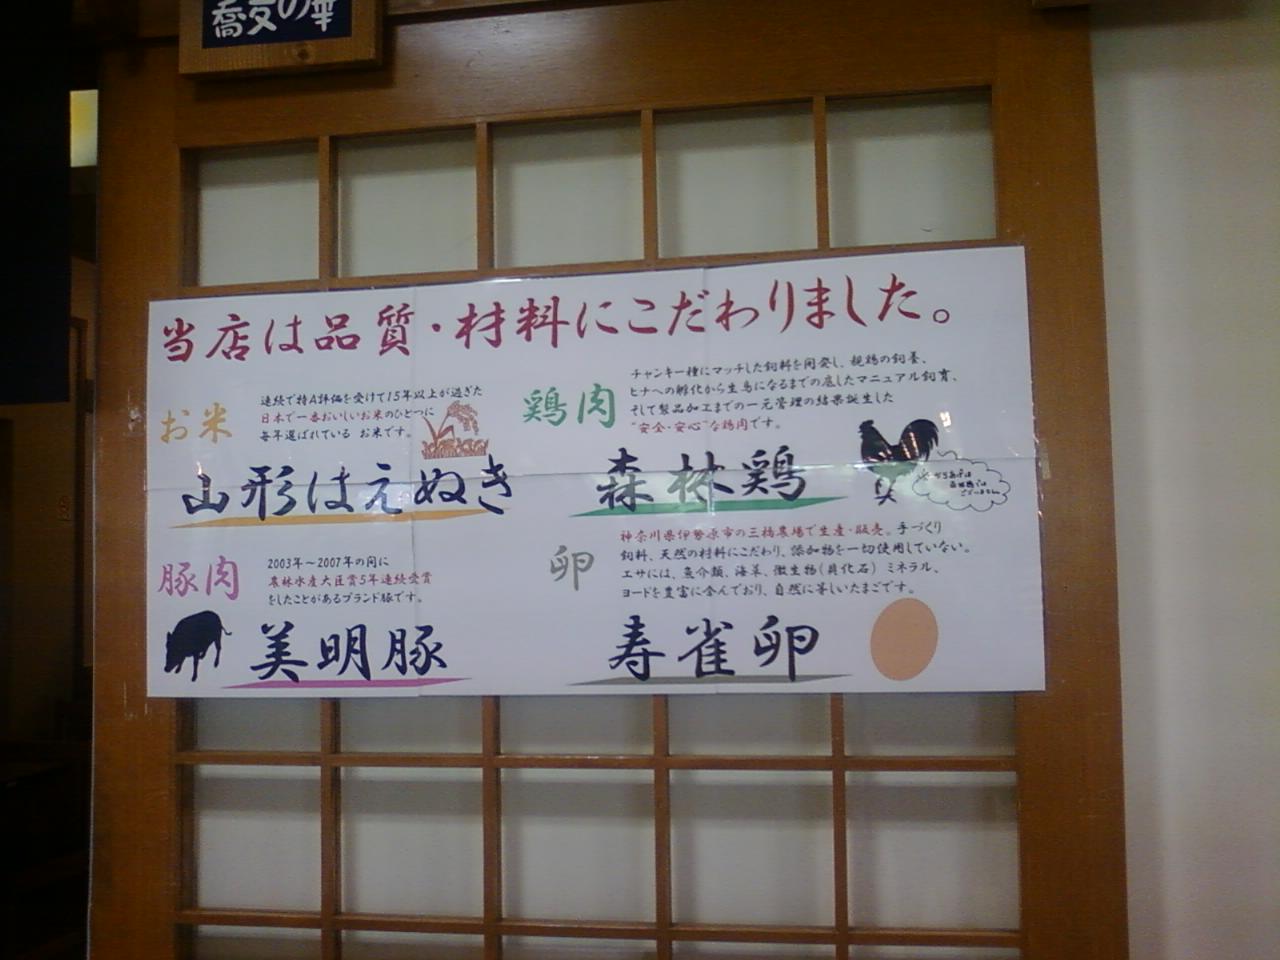 蕎麦の華
当店は品質・材料にこだわりました。
お米
連続で特A評価を受けて15年以上が過ぎた
日本で一番おいしいお米のひとつに
毎年選ばれている お米です。
山形はえぬき
鶏肉
チャンキー種にマッチした飼料を開発し、親鶏の飼養、
ヒナへの孵化から生鳥になるまでの底したマニュアル飼育、
そして製品加工までの一元管理の結果誕生した
"安全・安心"な鶏肉です。
森林鶏
からあげは
森林鶏では
ございません。
豚肉
2003年～2007年の間に
農林水産大臣賞5年連続受賞
をしたことがあるブランド豚です。
美明豚
卵
神奈川県伊勢原市の三橋農場で生産・販売。手づくり
飼料、天然の材料にこだわり、添加物を一切使用していない。
エサには、魚介類、海草、微生物(貝化石) ミネラル、
ヨードを豊富に含んでおり、自然に等しいたまごです。
寿雀卵